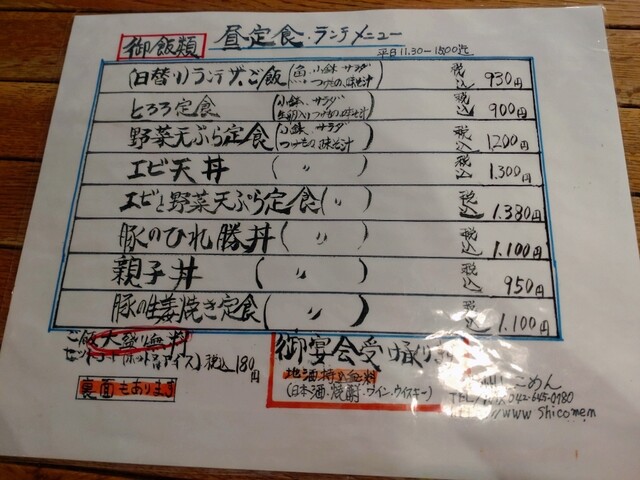 御飯類 昼定食・ランチメニュー
平日11.30-15:00迄
(日替り)ランチ ご飯(魚 小鉢、サラダ つけもの、味そ汁 税込 930円
とろろ定食 (小鉢、サラダ つけもの、味そ汁 税込 900円
野菜天ぷら定食(小鉢、サラダ つけもの、味そ汁 税込 1200円
エビ天丼 ( 〃 ) 税込 1.300円
エビと野菜天ぷら定食( 〃 ) 税込 1.380円
豚のひれ勝丼( 〃 ) 税込 1.100円
親子丼 ( 〃 ) 税込 950円
豚の生姜焼き定食( 〃 ) 税込 1.100円
ご飯大盛り無料
アイス)税込180円
裏面もあります
御宴会受け
地酒持込無料
(日本酒・焼酎・ワイン・ウイスキー)
ごめん
TEL/FAX 042-645-0780
www shicomen